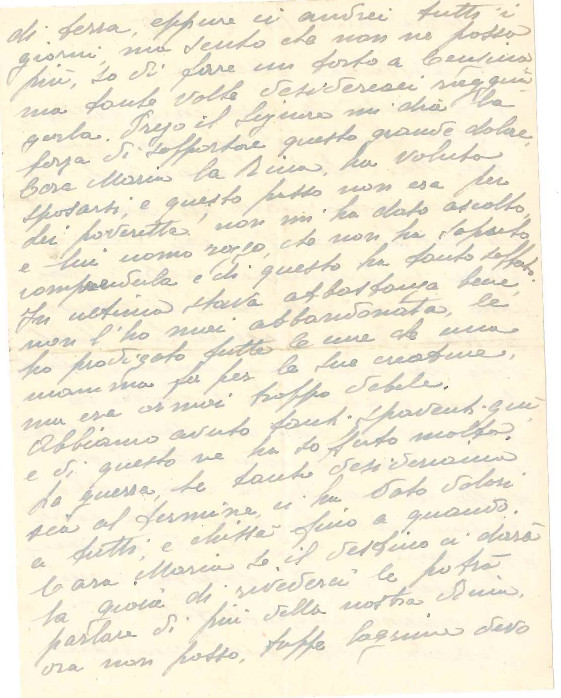 di terra, eppure ci andrei tutti i
giorni, ma sento che non ne posso
più, so di fare un torto a
ma tante volte desidererei raggiun
gerla. Prego il Signore mi dia la
forza di sopportare questo grande dolore.
Cara Maria la Pina, ha voluto
sposarsi, e questo passo non era per
lei poveretta, non mi ha dato ascolto,
e lui uomo rozzo, che non ha saputo
comprenderla e di questo ha tanto sofferto.
In ultimo stava abbastanza bene,
non l'ho mai abbandonata, le
ho prodigato tutte le cure che una
mamma fa per le sue creature,
ma era ormai troppo debole.
Abbiamo avuto tanti spaventi qui,
e di questo ne ha sofferto molto.
La guerra, che tanto desideriamo
sia al termine, ci ha dato dolori
a tutti, e chissà fino a quando.
Cara Maria se il destino ci darà
la gioia di rivederci le potrà
parlare di più della nostra Pina,
ora non posso, troppe lagrime devo